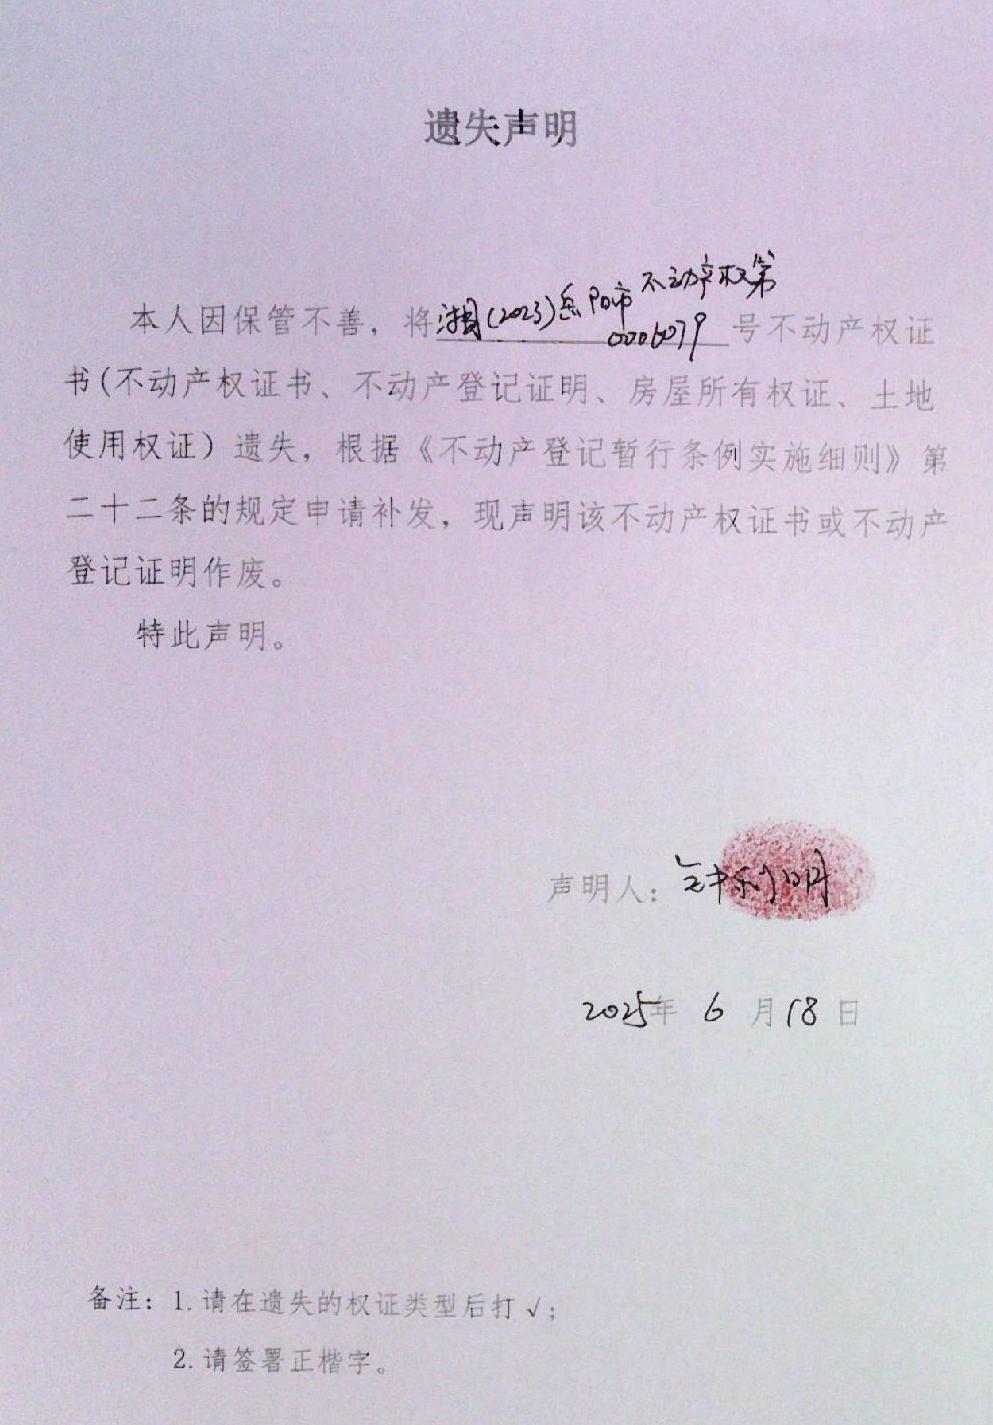 遗失声明
本人因保管不善，将湘(2023)岳阳市不动产权第0006079号不动产权证
书(不动产权证书、不动产登记证明、房屋所有权证、土地
使用权证）遗失，根据《不动产登记暂行条例实施细则》第
二十二条的规定申请补发，现声明该不动产权证书或不动产
登记证明作废。
特此声明。
声明人：钟利明
2025年 6 月 18 日
备注：1.请在遗失的权证类型后打√；
2.请签署正楷字。